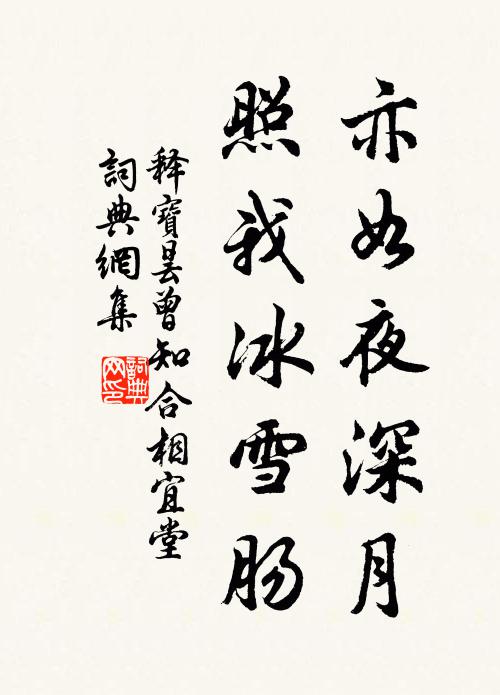 亦如夜深月
照我冰雪肠
释寶曇曾知合相宜堂
詞典網集
詞典
网印